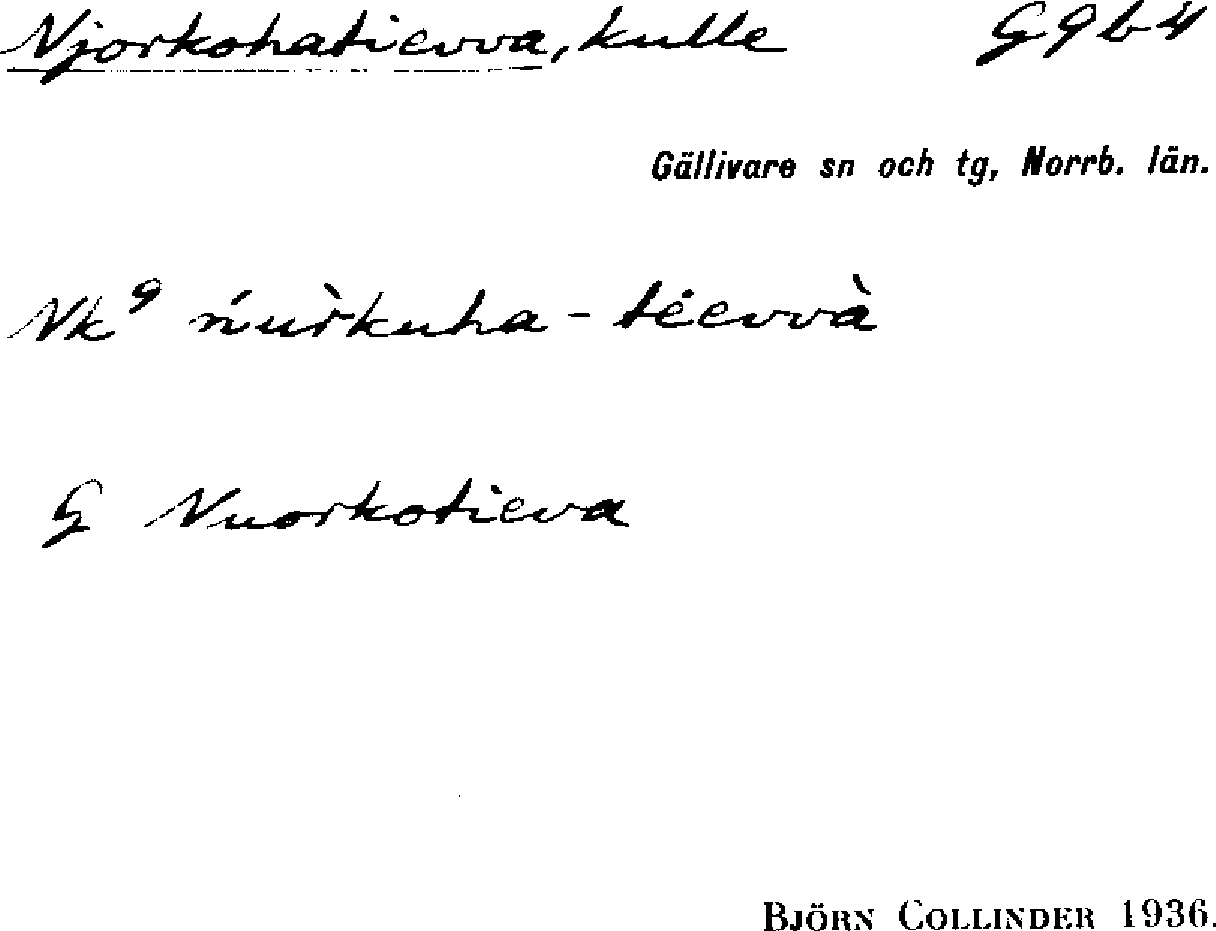 Njorkohatievva, kulle G9b4
Gällivare sn och tg, Norrb. län.
Nk⁹ ńur̀kuha-tėevvà
G Nuorkotieva
BJÖRN COLLINDER 1936.